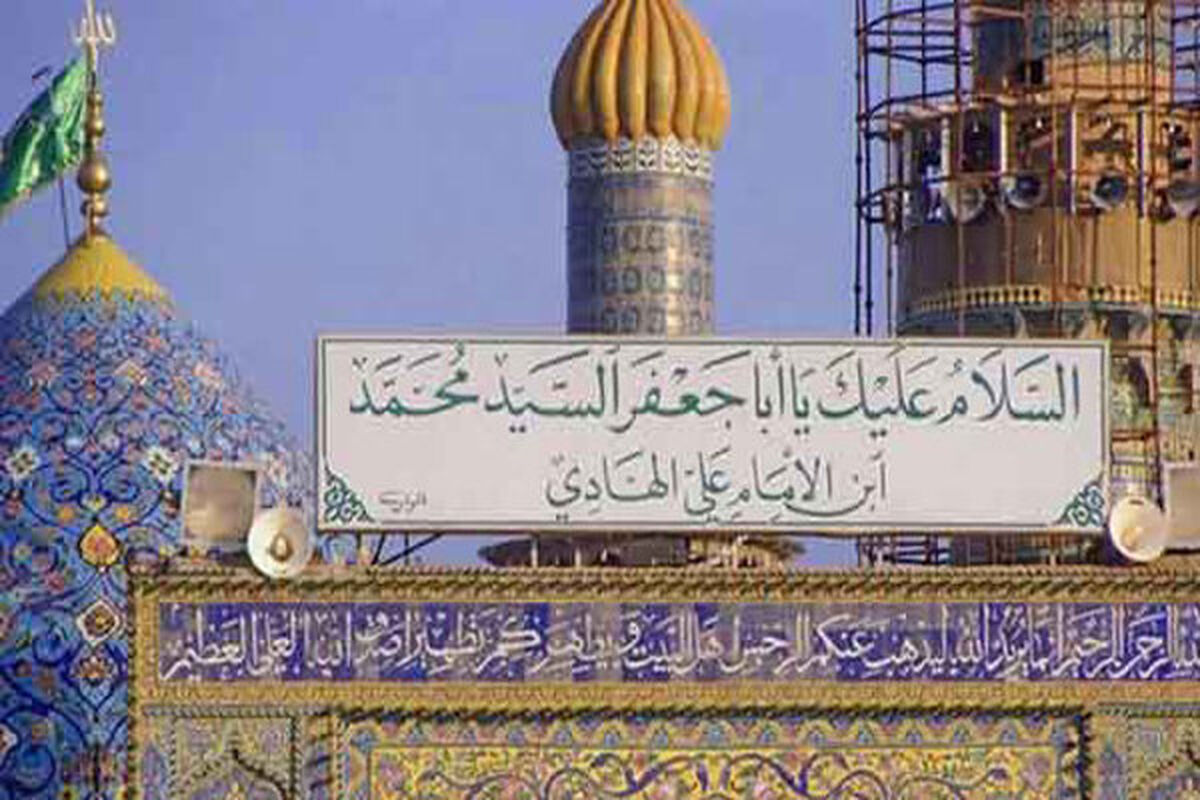 السَّلَامُ عَلَيْكَ يَا أَبَا جَعْفَر السَّيِّد مُحَمَّد
ابْنِ الإِمَامِ عَلِيّ الهَادِي
الرحمن الرحيم إنما يريد الله ليذهب عنكم الرجس أهل البيت ويطهركم تطهيرا صدق الله العلي العظيم